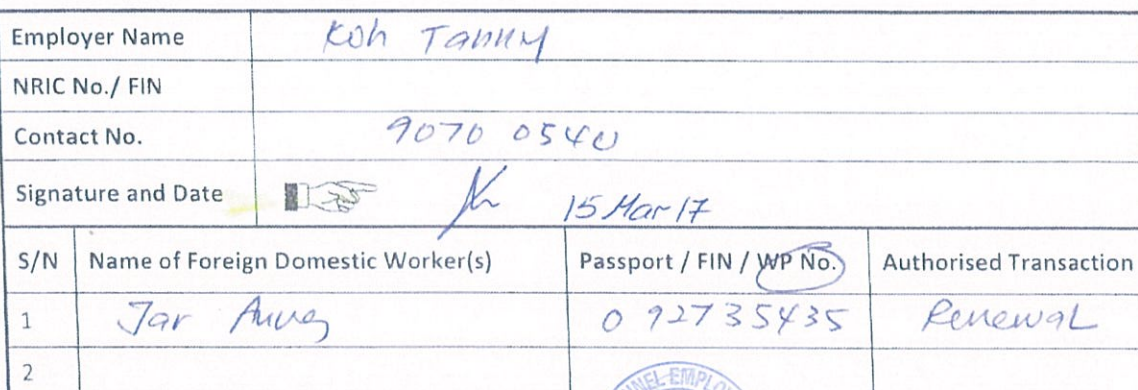 Employer Name Koh Tanny
NRIC No./ FIN
Contact No. 9070 0540
Signature and Date 15 Mar 17
S/N Name of Foreign Domestic Worker(s) Passport / FIN / WP No. Authorised Transaction
1 Jar Aung 0 92735435 Renewal
2